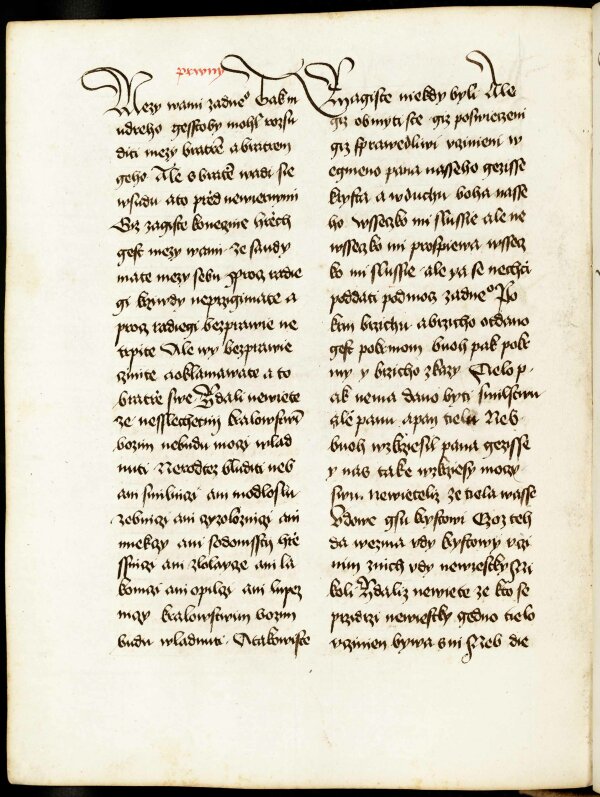 prwny
Mezy wami zadneº Tak m
udreho gesstoby mohl rozsu
diti mezy bratrē a bratrem
geho Ale s bratrē wadi sie
w sudu a to prěd newiernymi
Giz zagiste konecznie hrěch
gest mezy wami ze saudy
mate mezy sebu Procz radie
gi krziwdy neprzigimate a
procz radiegi bezprawie ne
trpite Ale wy bezprawie
czinite a oklamawate a to
bratrě swe Zdali newiete
ze nesslechetny kralowstwi
bozim nebudu moczi wlad
nuti Nerodtez bluditi neb
ani smilniczi ani modloslu
zebniczi ani czyzolozniczi ani
miekczy ani sodomssczy hrě
ssniczi ani zlotayze ani la
komczi ani opilczi ani lupez
niczy kralowstwim bozim
budu wladnuti A takowiste
zagiste niekdy byli Ale
giz obmyti ste giz poswieczeni
giz sprawedliwi vczinieni w
egmeno pana nasseho gezisse
krysta a w duchu boha nasse
ho wsseczko mi slussie ale ne
wsseczko mi prospiewa wssecz
ko mi slussie ale ya se nechci
poddati pod mocz zadneº Po
krm brzichu a brzicho otdano
gest pokrmom buoh pak pokr
my y brzicho zkazy Tielo p
ak nema dano byti smilstwu
ale panu a pan tielu Neb
buoh wzkrziesil pana gezisse
y nas take wzkrziesy moczy
swu newieteliz ze tiela wasse
vdowe gsu krystowi Czoz teh
da wezma vdy krystowy vczi
nim z nich vdy newiestky Nı
koli Zdaliz newiete ze kto se
przidrzi newiestky gedno tielo
vczinien bywa s ni Neb die